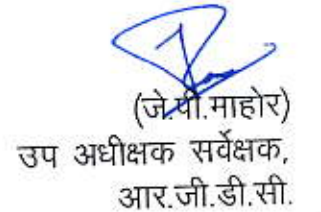 (जे.पी.माहोर)
उप अधीक्षक सर्वेक्षक,
आर.जी.डी.सी.